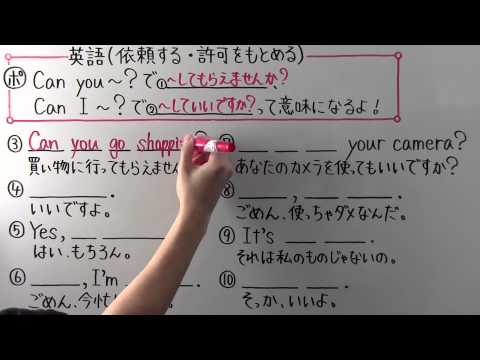 英語(依頼する・許可をもとめる)
ポ Can you ~?で①~してもらえませんか?
Can I ~?で②~していいですか?って意味になるよ!
③ Can you go shoppin ?
買い物に行ってもらえません
④
いいですよ。
⑤ Yes,
はい、もちろん。
⑥ , I'm
ごめん、今忙し
⑦ your camera?
あなたのカメラを使ってもいいですか?
⑧ , .
ごめん、使っちゃダメなんだ。
⑨ It's .
それは私のものじゃないの。
⑩ .
そっか、いいよ。